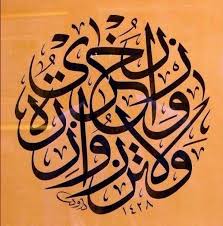 ولا تزر وازرة وزر أخرى
١٤٢٨